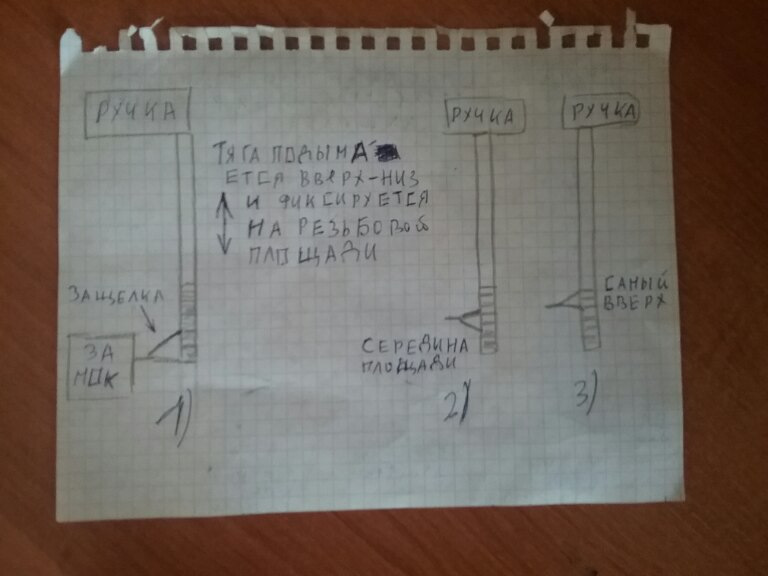 РУЧКА
ТЯГА ПОДЫМА
ЕТСЯ ВВЕРХ-НИЗ
И ФИКСИРУЕТСЯ
НА РЕЗЬБОВОЙ
ПЛОЩАДИ
ЗАЩЕЛКА
ЗА
МОК
1)
РУЧКА
СЕРЕДИНА
ПЛОЩАДИ
2)
РУЧКА
САМЫЙ
ВВЕРХ
3)